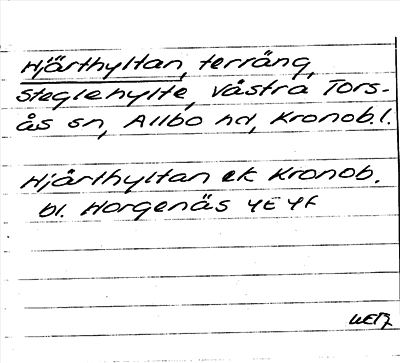 Hjärthyltan, terräng,
Steglehylte, Västra Tors-
ås sn, Allbo hd, Kronob.l.
Hjärthyltan ek Kronob.
bl. Horgenäs 4E4f